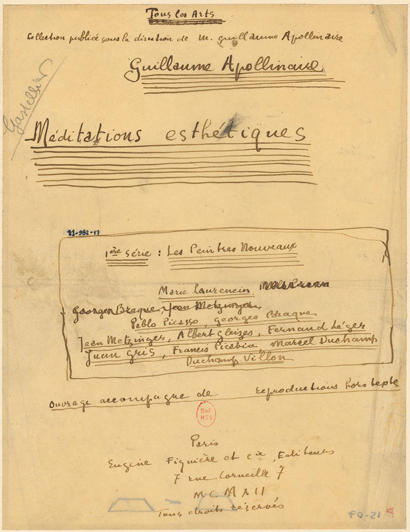 Tous les Arts
Collection publiée sous la direction de M. Guillaume Apollinaire
Guillaume Apollinaire
Méditations esthétiques
1ère Série : Les Peintres Nouveaux
Marie Laurencin
Georges Braque, Jean Metzinger
Pablo Picasso, georges Braque
Jean Metzinger, Albert Gleizes, Fernand Léger
Juan Gris, Francis Picabia, Marcel Duchamp
Duchamp Villon
Ouvrage accompagné de reproductions hors texte
Paris
Eugène Figuière et cie, Editeurs
7 rue Corneille 7
MCMXII
Tous droits réservés